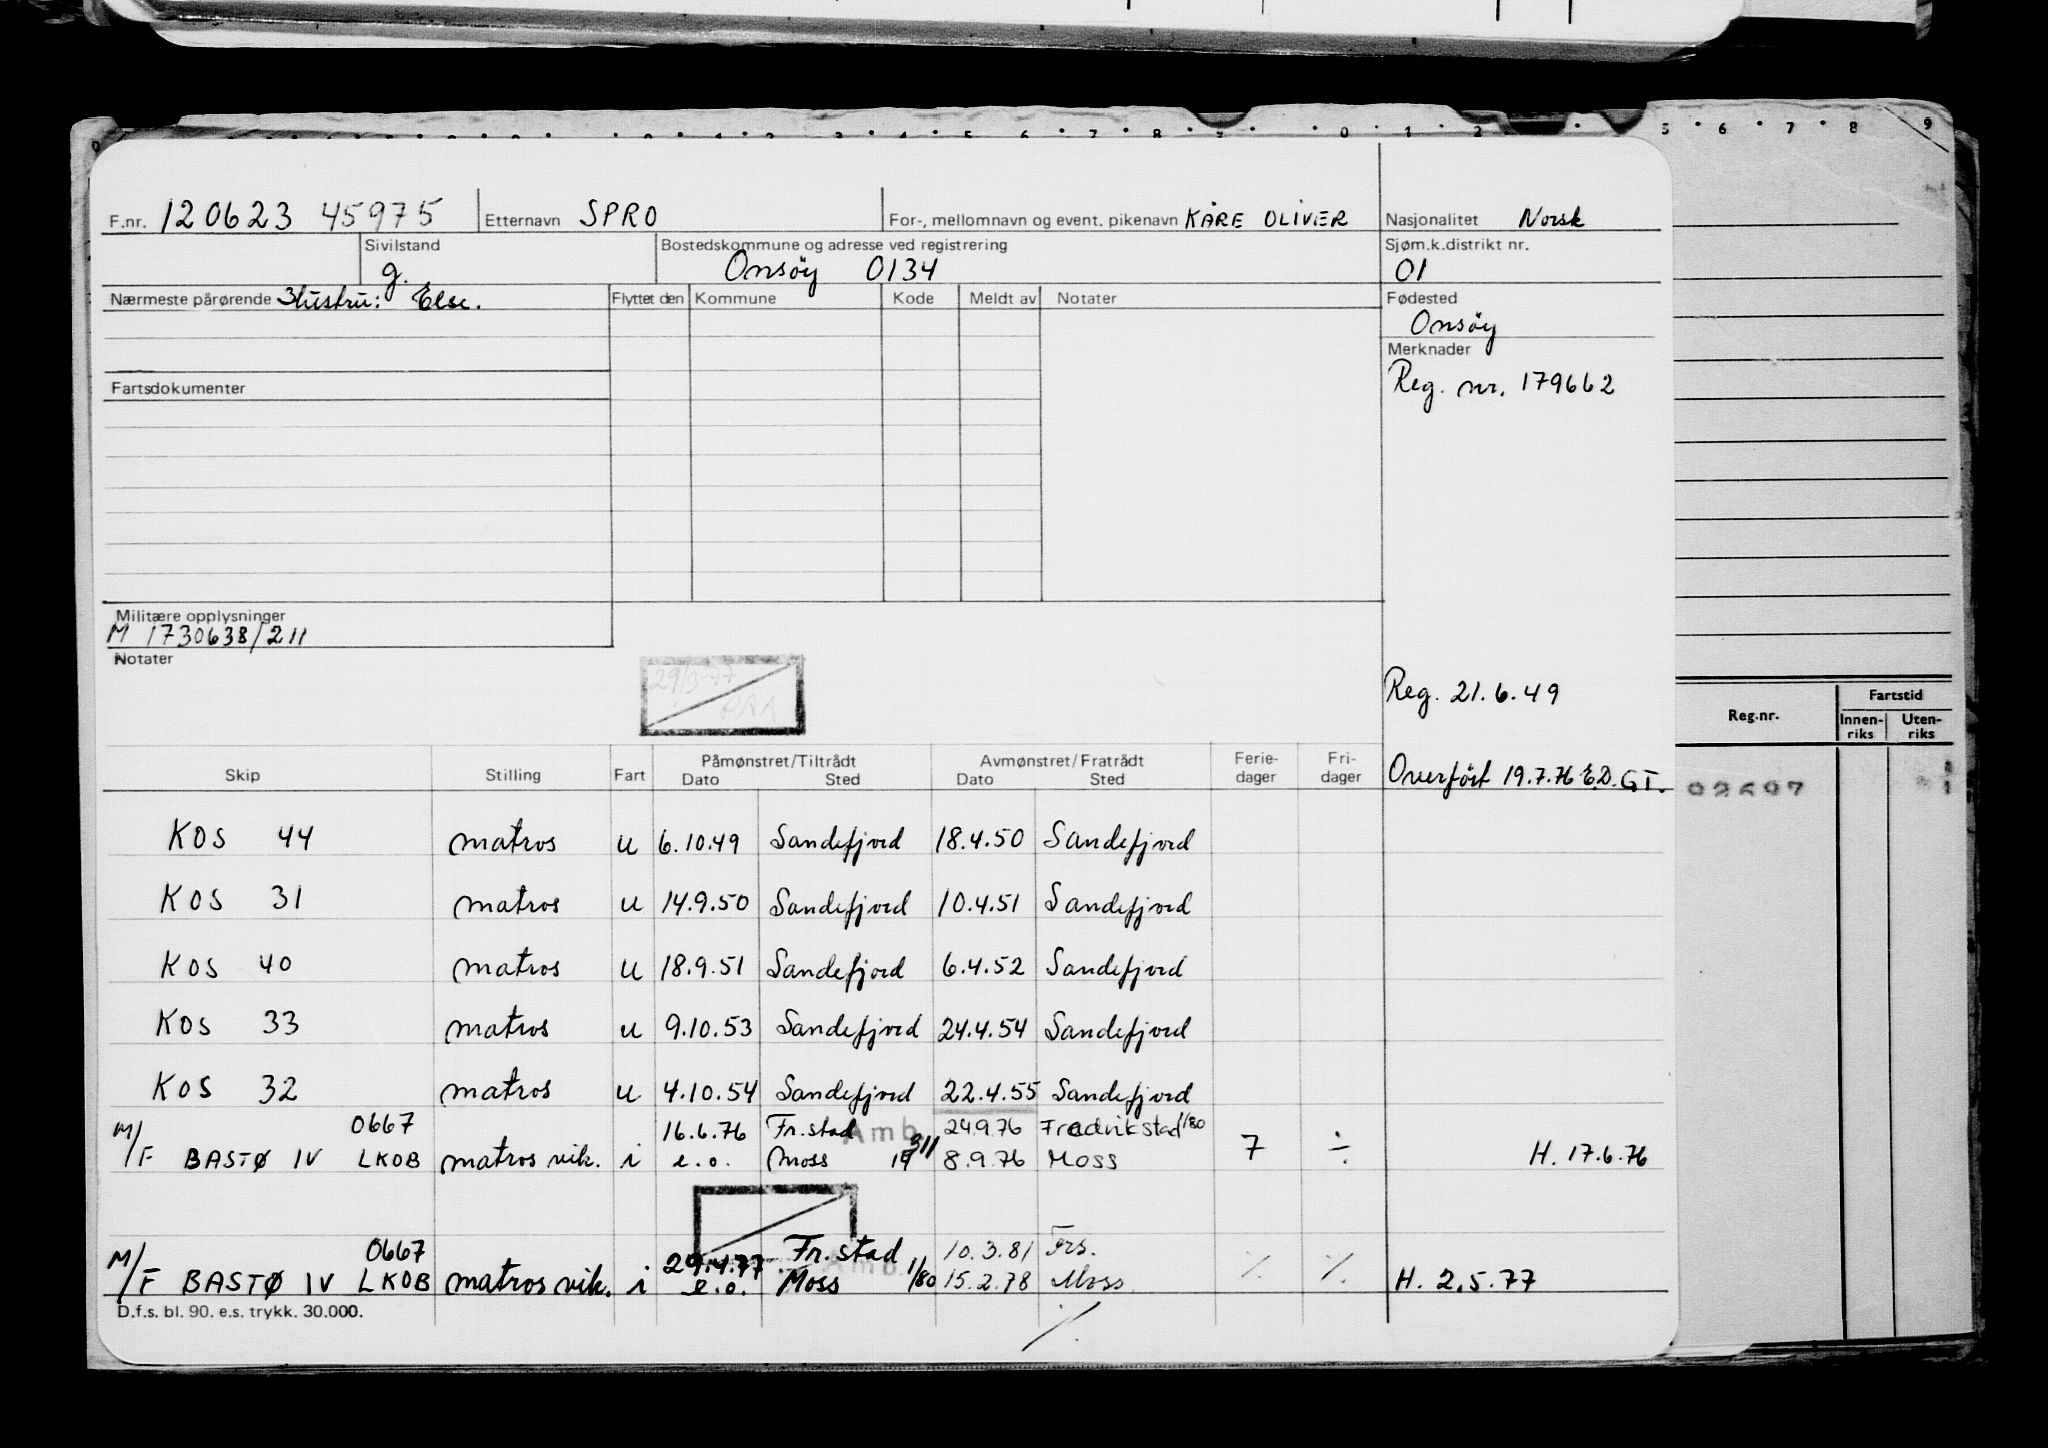 F.nr. 120623 45975 Etternavn SPRO For-, mellomnavn og event. pikenavn KÅRE OLIVER Nasjonalitet Norsk
Sivilstand g. Bostedskommune og adresse ved registrering Onsöy 0134 Sjøm.k.distrikt nr. 01
Nærmeste pårørende Hustru: Else. Flyttet den Kommune Kode Meldt av Notater Fødested
Onsöy
Merknader
Fartsdokumenter Reg. nr. 179662
Militære opplysninger
M 1730638/211
Notater
29/3-77
Reg. 21.6.49
Reg.nr. Fartstid
Innen-riks Uten-riks
Skip Stilling Fart Påmønstret/Tiltrådt Dato Sted Avmønstret/Fratrådt Dato Sted Ferie-dager Fri-dager Overfört 19.7.76 E.D. GT.
92697
KOS 44 matros u 6.10.49 Sandefjord 18.4.50 Sandefjord
KOS 31 matros u 14.9.50 Sandefjord 10.4.51 Sandefjord
KOS 40 matros u 18.9.51 Sandefjord 6.4.52 Sandefjord
KOS 33 matros u 9.10.53 Sandefjord 24.4.54 Sandefjord
KOS 32 matros u 4.10.54 Sandefjord 22.4.55 Sandefjord
0667 16.6.76 Fr.stad Amb. 24.9.76 Fredrikstad 1/80
M/F BASTØ IV LKOB matros vik. i e.o. Moss 8.9.76 Moss 7 ÷ H. 17.6.76
0667 29.4.77 Fr.stad 10.3.81 Frs.
M/F BASTØ IV LKOB matros vik. i e.o. Moss Amb. 1/80 15.2.78 Moss % % H. 2.5.77
D.f.s. bl. 90. e.s. trykk. 30.000.
%